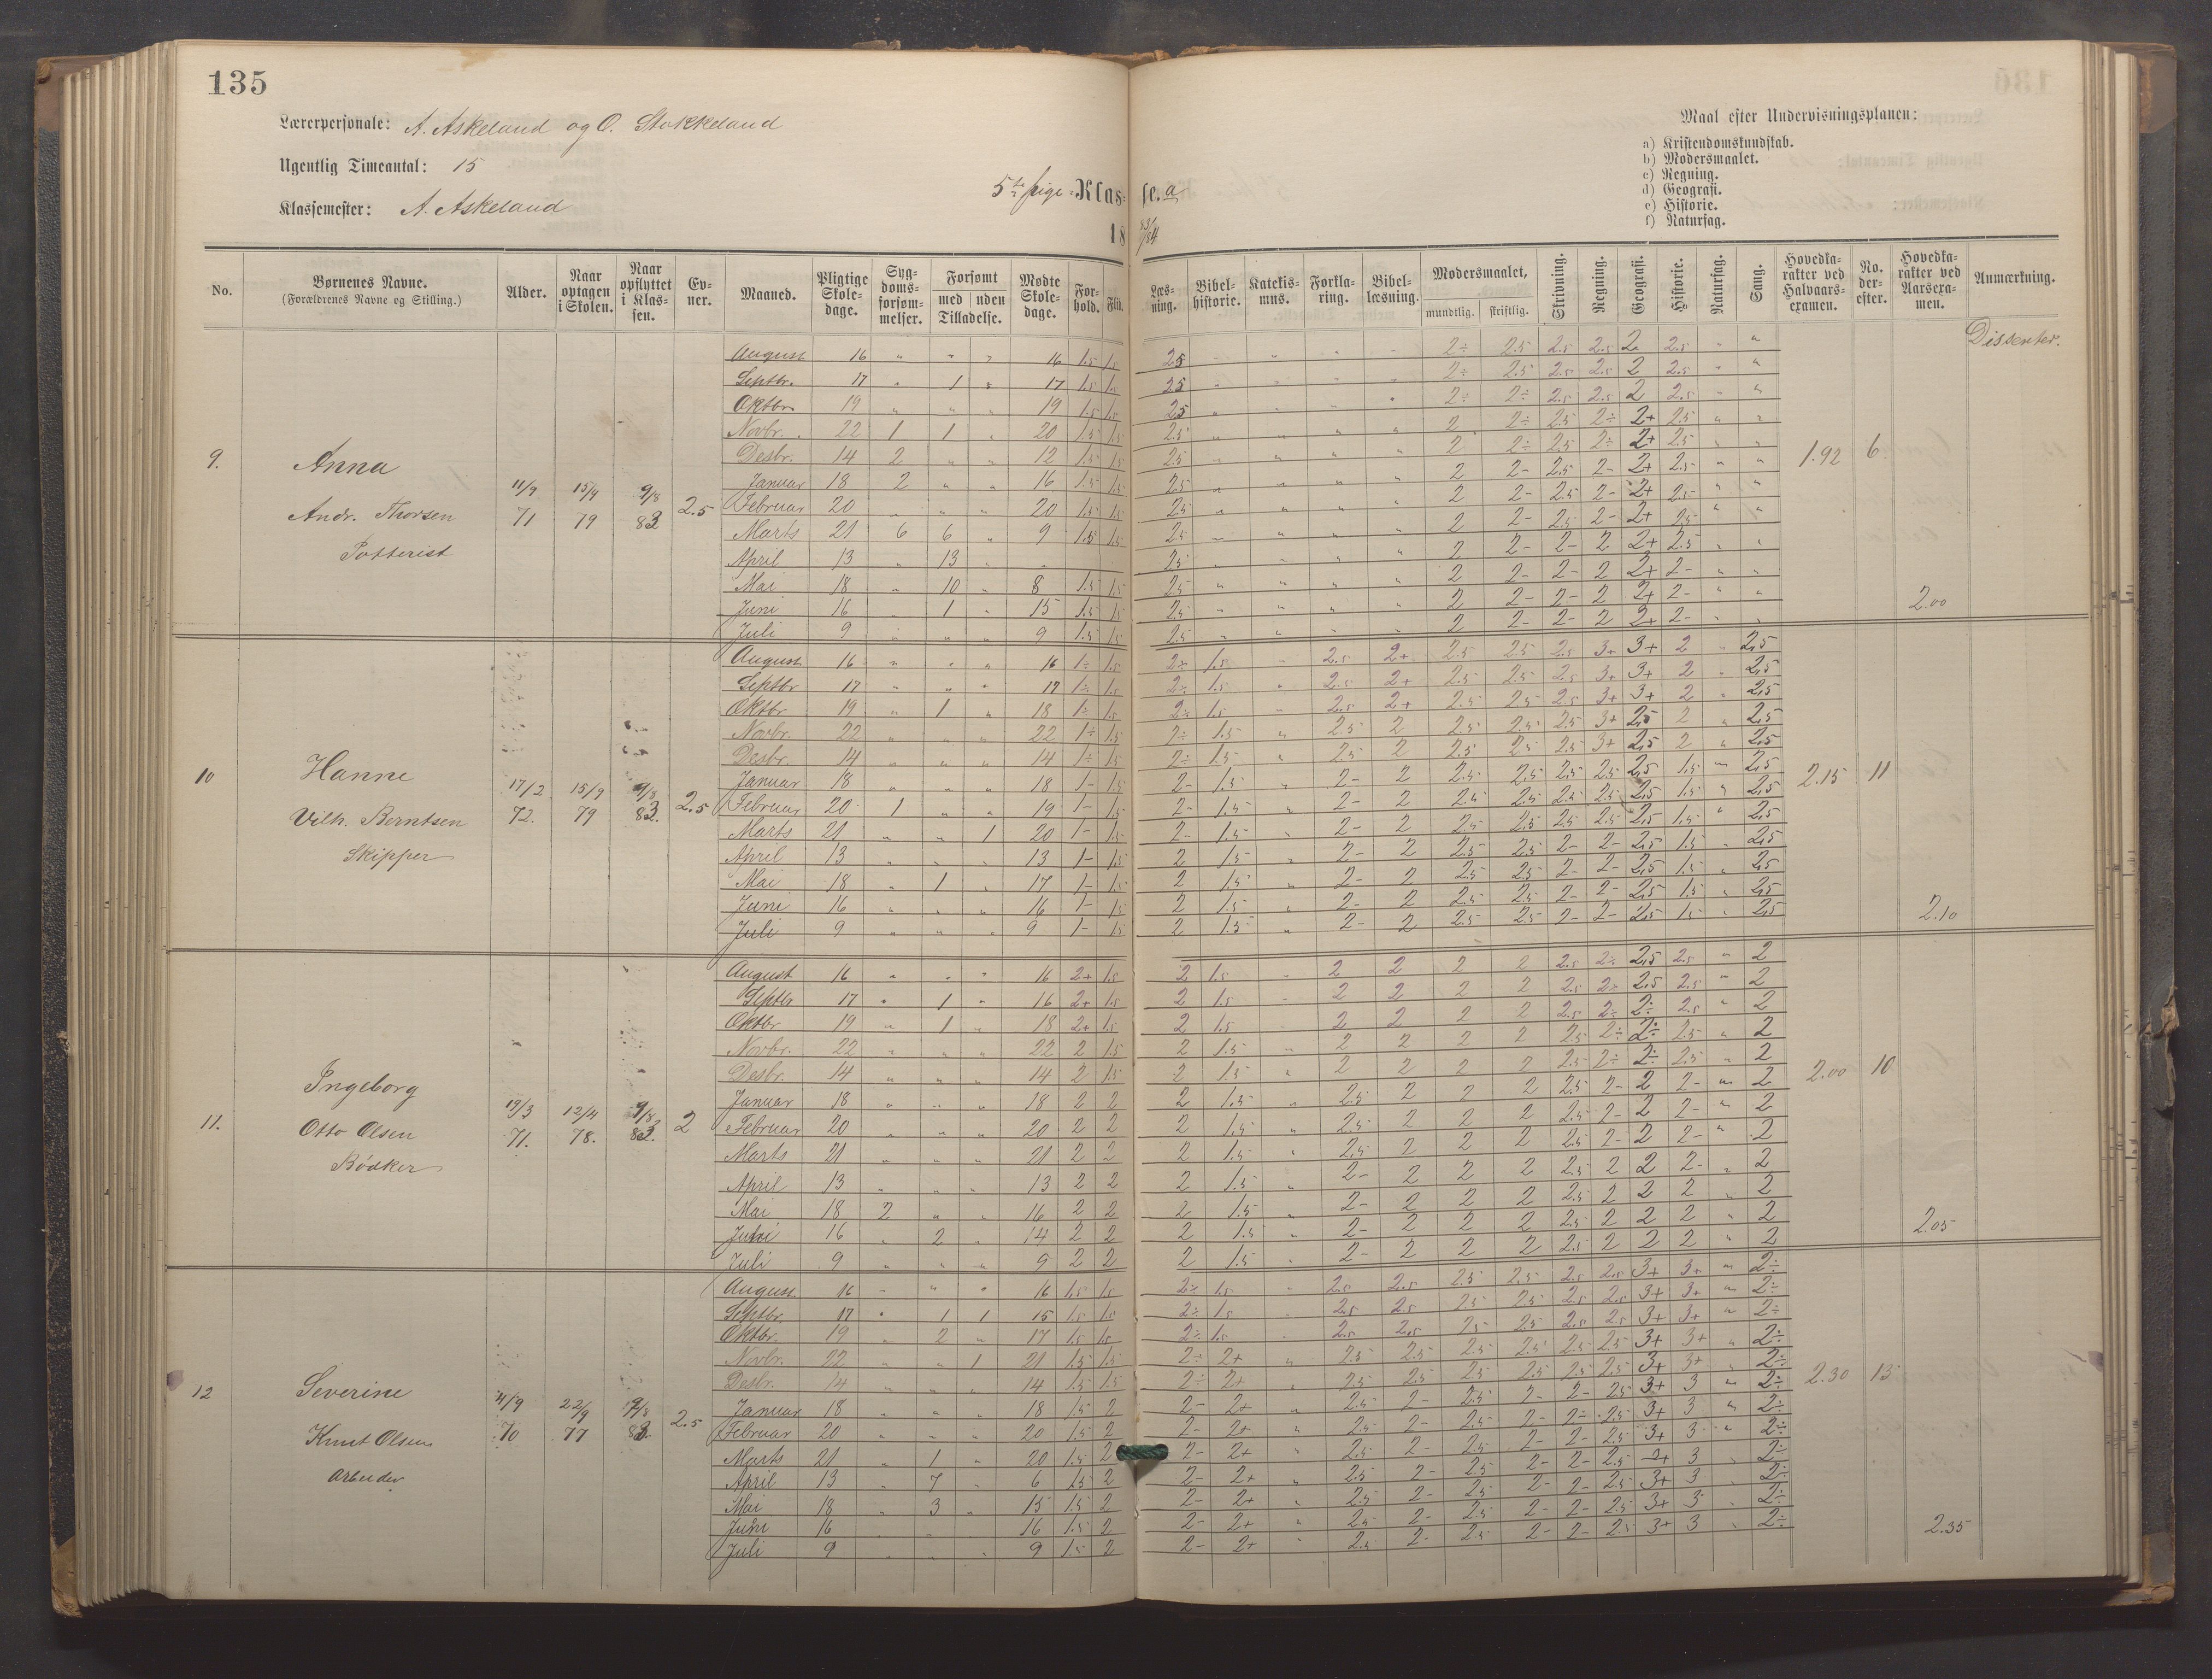 135
Lærerpersonale: A. Askeland og O. Stokkeland
Ugentlig Timeantal: 15
Klassemester: A. Askeland
5te pige-Klasse. a
18 83/84
Maal efter Undervisningsplanen:
a) Kristendomskundskab.
b) Modersmaalet.
c) Regning.
d) Geografi.
e) Historie.
f) Naturfag.
No. Børnenes Navne. (Forældrenes Navne og Stilling.) Alder. Naar optagen i Skolen. Naar opflyttet i Klassen. Evner. Maaned. Pligtige Skoledage. Sygdomsforsømmelser. Forsømt med uden Tilladelse. Mødte Skoledage. Forhold. Flid. Læsning. Bibelhistorie. Katekismus. Forklaring. Bibellæsning. Modersmaalet, mundtlig. skriftlig. Skrivning. Regning. Geografi. Historie. Naturfag. Sang. Hovedkarakter ved Halvaarsexamen. No. derefter. Hovedkarakter ved Aarsexamen. Anmærkning.
9. Anna
Andr. Thorsen
Potterist
11/9 71 15/9 79 9/8 83 2.5
August 16 " " " 16 1.5 1.5 2.5 2÷ 2.5 2.5 2.5 2 2.5 " " Dissenter.
Septbr. 17 " 1 " 17 1.5 1.5 2.5 2÷ 2.5 2.5 2.5 2 2.5 " "
Oktbr. 19 " " " 19 1.5 1.5 2.5 2÷ 2÷ 2.5 2.5 2 2.5 " "
Novbr. 22 1 1 " 20 1.5 1.5 2.5 2 2÷ 2.5 2÷ 2+ 2.5 " "
Desbr. 14 2 " " 12 1.5 1.5 2.5 2 2÷ 2.5 2÷ 2+ 2.5 " " 1.92 6
Januar 18 2 " " 16 1.5 1.5 2.5 2 2- 2.5 2- 2+ 2.5 " "
Februar 20 " " " 20 1.5 1.5 2.5 2 2- 2.5 2- 2+ 2.5 " "
Marts 21 6 6 " 9 1.5 1.5 2.5 2 2- 2.5 2- 2+ 2.5 " "
April 13 " 13 " " 2.5 2 2- 2- 2 2+ 2.5 " "
Mai 18 " 10 " 8 1.5 1.5 2.5 2 2- 2- 2 2+ 2- " "
Juni 16 " 1 " 15 1.5 1.5 2.5 2 2- 2- 2 2+ 2- " " 2.00
Juli 9 " " " 9 1.5 1.5 2.5 2 2- 2- 2 2+ 2- " "
10 Hanne
Vilh. Berntsen
Skipper
17/2 72. 15/9 79 9/8 83. 2.5
August 16 " " " 16 1÷ 1.5 2÷ 1.5 " 2.5 2+ 2.5 2.5 2.5 3+ 3+ 2 " 2,5
Septbr 17 " " " 17 1÷ 1.5 2÷ 1.5 " 2.5 2+ 2.5 2.5 2.5 3+ 3+ 2 " 2,5
Oktbr. 19 " 1 " 18 1÷ 1.5 2÷ 1.5 " 2.5 2+ 2.5 2.5 2.5 3+ 3+ 2 " 2,5
Novbr. 22 " " " 22 1÷ 1.5 2÷ 1.5 " 2.5 2 2.5 2.5 2.5 3+ 2,5 2 " 2,5
Desbr. 14 " " " 14 1÷ 1.5 2÷ 1.5 " 2.5 2 2.5 2.5 2.5 3+ 2,5 2 " 2,5
Januar 18 " " " 18 1- 1.5 2- 1.5 " 2- 2 2.5 2.5 2.5 2.5 2,5 1.5 " 2,5 2.15 11
Februar 20 1 " " 19 1- 1.5 2- 1.5 " 2- 2 2.5 2.5 2.5 2.5 2,5 1.5 " 2,5
Marts 21 " " 1 20 1- 1.5 2- 1.5 " 2- 2 2.5 2.5 2.5 2.5 2,5 1.5 " 2,5
April 13 " " " 13 1- 1.5 2 1.5 " 2- 2 2.5 2.5 2- 2- 2,5 1.5 " 2,5
Mai 18 " 1 " 17 1- 1.5 2 1.5 " 2- 2 2.5 2.5 2- 2- 2,5 1.5 " 2,5
Juni 16 " " " 16 1- 1.5 2 1.5 " 2- 2 2.5 2.5 2- 2- 2,5 1.5 " 2,5
Juli 9 " " " 9 1- 1.5 2 1.5 " 2- 2 2.5 2.5 2- 2- 2,5 1.5 " 2,5 2.10
11. Ingeborg
Otto Olsen
Bödker
19/3 71. 12/4 78. 9/8 83. 2
August 16 " " " 16 2+ 1.5 2 1.5 " 2 2 2 2 2.5 2÷ 2,5 2.5 " 2
Septbr 17 " 1 " 16 2+ 1.5 2 1.5 " 2 2 2 2 2.5 2÷ 2,5 2.5 " 2
Oktbr 19 " 1 " 18 2+ 1.5 2 1.5 " 2 2 2 2 2.5 2÷ 2÷ 2.5 " 2
Novbr. 22 " " " 22 2 1.5 2 1.5 " 2 2 2 2 2.5 2÷ 2÷ 2.5 " 2
Desbr. 14 " " " 14 2 1.5 2 1.5 " 2 2 2 2 2.5 2÷ 2÷ 2.5 " 2 2.00 10
Januar 18 " " " 18 2 2 2 1.5 " 2.5 2 2 2 2.5 2- 2 2- " 2
Februar 20 " " " 20 2 2 2 1.5 " 2.5 2 2 2 2.5 2- 2 2- " 2
Marts 21 " " " 21 2 2 2 1.5 " 2.5 2 2 2 2.5 2- 2 2- " 2
April 13 " " " 13 2 2 2 1.5 " 2- 2 2 2 2.5 2 2 2- " 2
Mai 18 2 " " 16 2 2 2 1.5 " 2- 2 2 2 2.5 2 2 2 " 2
Juni 16 " 2 " 14 2 2 2 1.5 " 2- 2 2 2 2.5 2 2 2 " 2 2.05
Juli 9 " " " 9 2 2 2 1.5 " 2- 2 2 2 2.5 2 2 2 " 2
12 Severine
Knut Olsen
Arbeider
70 22/9 77 2.5
August. 16 " " " 16 1.5 1.5 2÷ 1.5 " 2.5 2.5 2.5 2.5 2.5 2.5 3+ 3+ " 2÷
Septbr. 17 " 1 1 15 1.5 1.5 2÷ 1.5 " 2.5 2.5 2.5 2.5 2.5 2.5 3+ 3+ " 2÷
Oktbr. 19 " 2 " 17 1.5 1.5 2÷ 1.5 " 2.5 2.5 2.5 2.5 2.5 2.5 3+ 3+ " 2÷
Novbr. 22 " " 1 21 1.5 1.5 2÷ 2+ " 2.5 2.5 2.5 2.5 2.5 2.5 3+ 3+ " 2÷
Desbr. 14 " " " 14 1.5 1.5 2÷ 2+ " 2.5 2.5 2.5 2.5 2.5 2.5 3+ 3+ " 2÷ 2.30 13
Januar 18 " " " 18 1.5 2 2- 2+ " 2.5 2- 2.5 2- 2- 2.5 3+ 3 " 2÷
Februar 20 " " " 20 1.5 2 2- 2+ " 2.5 2- 2.5 2- 2- 2.5 3+ 3 " 2÷
Marts 21 " 1 " 20 1.5 2 2- 2+ " 2.5 2- 2.5 2- 2- 2.5 3+ 3 " 2÷
April 13 " 7 " 6 1.5 2 2- 2+ " 2.5 2- 2.5 2- 2- 2.5 3+ 3 " 2÷
Mai 18 " 3 " 15 1.5 2 2- 2+ " 2.5 2- 2.5 2- 2- 2.5 3+ 3 " 2÷
Juni 16 " " " 16 1.5 2 2- 2+ " 2.5 2- 2.5 2- 2- 2.5 3+ 3 " 2÷
Juli 9 " " " 9 1.5 2 2- 2+ " 2.5 2- 2.5 2- 2- 2.5 3+ 3 " 2÷ 2.35